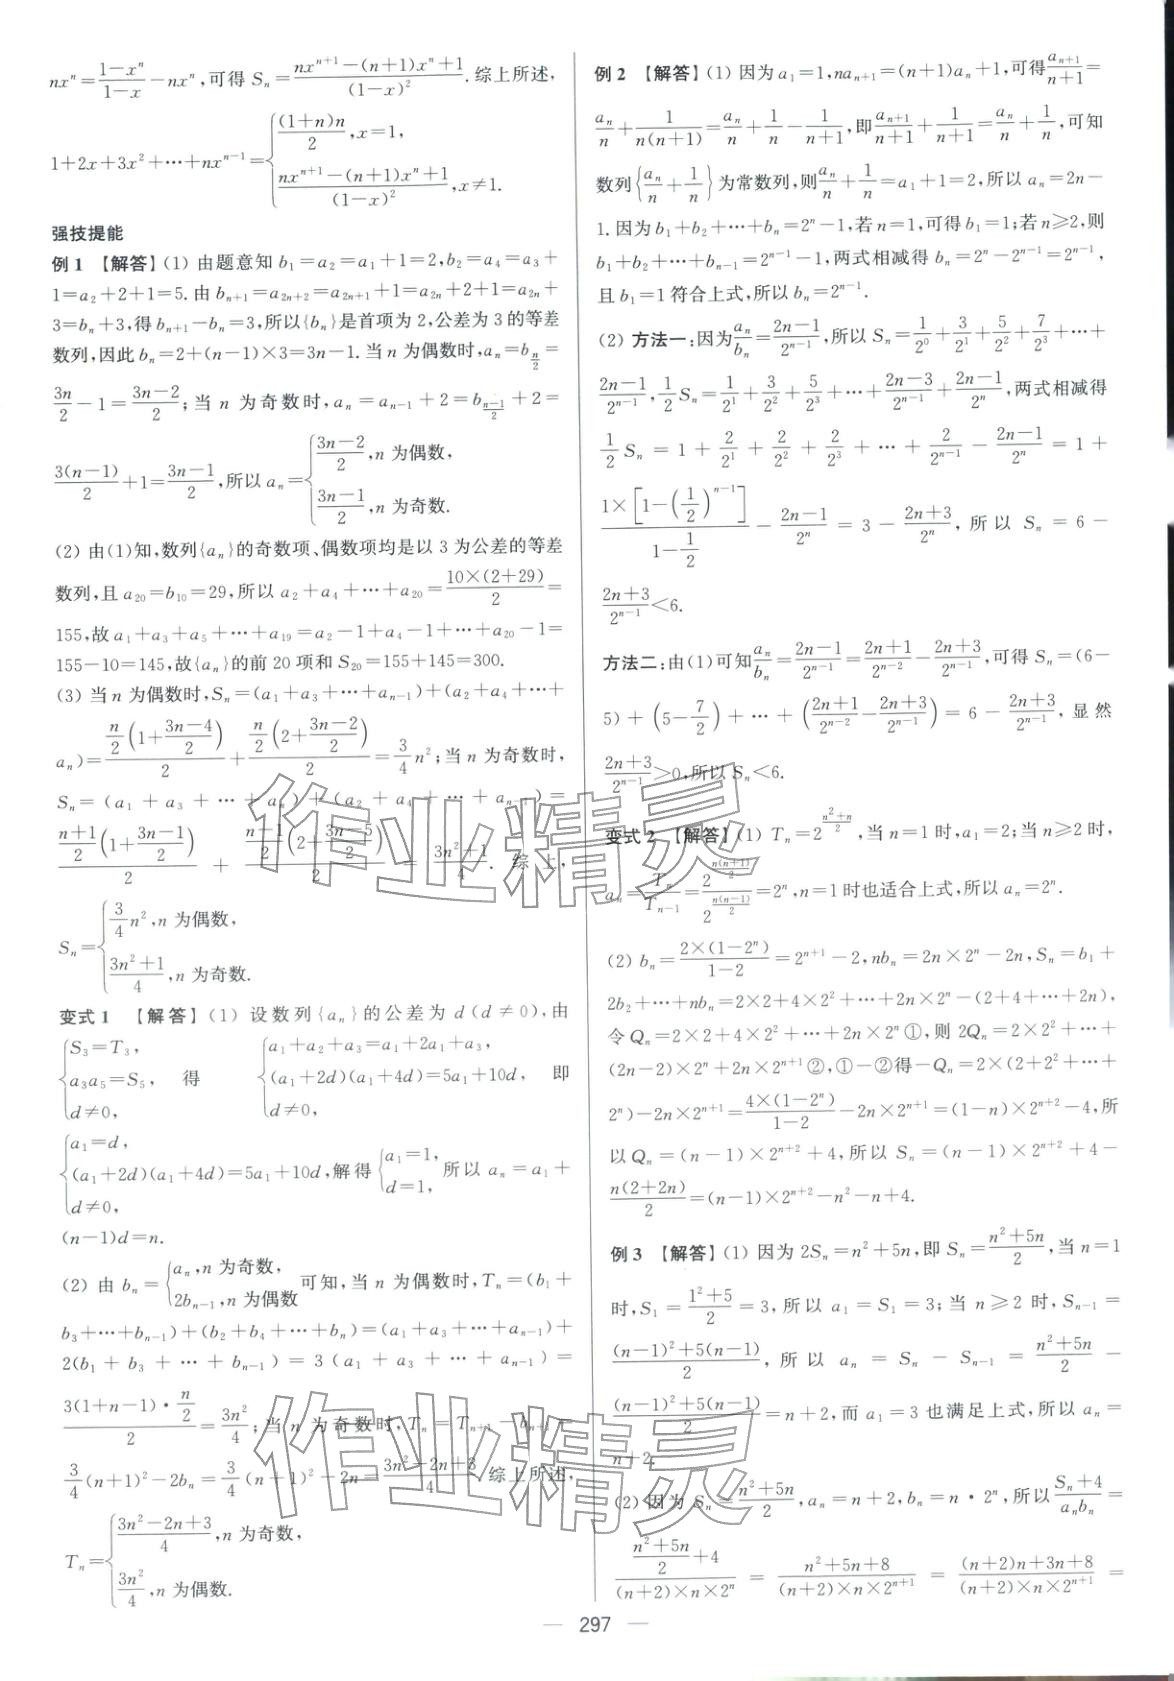 nxⁿ=(1-xⁿ)/(1-x)-nxⁿ,可得 Sₙ=(nxⁿ⁺¹-(n+1)xⁿ+1)/(1-x)².综上所述,
1+2x+3x²+…+nxⁿ⁻¹={(1+n)n/2,x=1,
(nxⁿ⁺¹-(n+1)xⁿ+1)/(1-x)²,x≠1.
强技提能
例 1 【解答】(1) 由题意知 b₁=a₂=a₁+1=2,b₂=a₄=a₃+
1=a₂+2+1=5.由 bₙ₊₁=a₂ₙ₊₂=a₂ₙ₊₁+1=a₂ₙ+2+1=a₂ₙ+
3=bₙ+3,得 bₙ₊₁-bₙ=3,所以{bₙ}是首项为 2,公差为 3 的等差
数列,因此 bₙ=2+(n-1)×3=3n-1.当 n 为偶数时,aₙ=b_{n/2}=
3n/2-1=(3n-2)/2;当 n 为奇数时,aₙ=aₙ₋₁+2=b_{(n-1)/2}+2=
3(n-1)/2+1=(3n-1)/2,所以 aₙ={(3n-2)/2,n 为偶数,
(3n-1)/2,n 为奇数.
(2) 由(1)知,数列{aₙ}的奇数项、偶数项均是以 3 为公差的等差
数列,且 a₂₀=b₁₀=29,所以 a₂+a₄+…+a₂₀=10×(2+29)/2=
155,故 a₁+a₃+a₅+…+a₁₉=a₂-1+a₄-1+…+a₂₀-1=
155-10=145,故{aₙ}的前 20 项和 S₂₀=155+145=300.
(3) 当 n 为偶数时,Sₙ=(a₁+a₃+…+aₙ₋₁)+(a₂+a₄+…+
aₙ)=(n/2)(1+(3n-4)/2)/2+(n/2)(2+(3n-2)/2)/2=(3/4)n²;当 n 为奇数时,
Sₙ=(a₁+a₃+…+aₙ)+(a₂+a₄+…+aₙ₋₁)=
((n+1)/2)(1+(3n-1)/2)/2+((n-1)/2)(2+(3n-5)/2)/2=(3n²+1)/4.综上,
Sₙ={(3/4)n²,n 为偶数,
(3n²+1)/4,n 为奇数.
变式 1 【解答】(1) 设数列{aₙ}的公差为 d(d≠0),由
{S₃=T₃, a₃a₅=S₅, d≠0, 得 {a₁+a₂+a₃=a₁+2a₁+a₃, (a₁+2d)(a₁+4d)=5a₁+10d, d≠0, 即
{a₁=d, (a₁+2d)(a₁+4d)=5a₁+10d, d≠0, 解得{a₁=1, d=1, 所以 aₙ=a₁+
(n-1)d=n.
(2) 由 bₙ={aₙ,n 为奇数, 2bₙ₋₁,n 为偶数 可知,当 n 为偶数时,Tₙ=(b₁+
b₃+…+bₙ₋₁)+(b₂+b₄+…+bₙ)=(a₁+a₃+…+aₙ₋₁)+
2(b₁+b₃+…+bₙ₋₁)=3(a₁+a₃+…+aₙ₋₁)=
3(1+n-1)·(n/2)/2=3n²/4;当 n 为奇数时,Tₙ=Tₙ₊₁-bₙ₊₁=
(3/4)(n+1)²-2bₙ=(3/4)(n+1)²-2n=(3n²-2n+3)/4.综上所述,
Tₙ={(3n²-2n+3)/4,n 为奇数,
3n²/4,n 为偶数.
例 2 【解答】(1) 因为 a₁=1,naₙ₊₁=(n+1)aₙ+1,可得aₙ₊₁/(n+1)=
aₙ/n+1/(n(n+1))=aₙ/n+1/n-1/(n+1),即aₙ₊₁/(n+1)+1/(n+1)=aₙ/n+1/n,可知
数列{aₙ/n+1/n}为常数列,则aₙ/n+1/n=a₁+1=2,所以 aₙ=2n-
1.因为 b₁+b₂+…+bₙ=2ⁿ-1,若 n=1,可得 b₁=1;若 n≥2,则
b₁+b₂+…+bₙ₋₁=2ⁿ⁻¹-1,两式相减得 bₙ=2ⁿ-2ⁿ⁻¹=2ⁿ⁻¹,
且 b₁=1 符合上式,所以 bₙ=2ⁿ⁻¹.
(2) 方法一:因为aₙ/bₙ=(2n-1)/2ⁿ⁻¹,所以 Sₙ=1/2⁰+3/2¹+5/2²+7/2³+…+
(2n-1)/2ⁿ⁻¹,(1/2)Sₙ=1/2¹+3/2²+5/2³+…+(2n-3)/2ⁿ⁻¹+(2n-1)/2ⁿ,两式相减得
(1/2)Sₙ=1+2/2¹+2/2²+2/2³+…+2/2ⁿ⁻¹-(2n-1)/2ⁿ=1+
1×[1-(1/2)ⁿ⁻¹]/(1-1/2)-(2n-1)/2ⁿ=3-(2n+3)/2ⁿ,所以 Sₙ=6-
(2n+3)/2ⁿ⁻¹<6.
方法二:由(1)可知aₙ/bₙ=(2n-1)/2ⁿ⁻¹=(2n+1)/2ⁿ⁻²-(2n+3)/2ⁿ⁻¹,可得 Sₙ=(6-
5)+(5-7/2)+…+((2n+1)/2ⁿ⁻²-(2n+3)/2ⁿ⁻¹)=6-(2n+3)/2ⁿ⁻¹,显然
(2n+3)/2ⁿ⁻¹>0,所以 Sₙ<6.
变式 2 【解答】(1) Tₙ=2^((n²+n)/2),当 n=1 时,a₁=2;当 n≥2 时,
aₙ=Tₙ/Tₙ₋₁=2^(n(n+1)/2)/2^(n(n-1)/2)=2ⁿ,n=1 时也适合上式,所以 aₙ=2ⁿ.
(2) bₙ=2×(1-2ⁿ)/(1-2)=2ⁿ⁺¹-2,nbₙ=2n×2ⁿ-2n,Sₙ=b₁+
2b₂+…+nbₙ=2×2+4×2²+…+2n×2ⁿ-(2+4+…+2n),
令 Qₙ=2×2+4×2²+…+2n×2ⁿ①,则 2Qₙ=2×2²+…+
(2n-2)×2ⁿ+2n×2ⁿ⁺¹②,①-②得-Qₙ=2×(2+2²+…+
2ⁿ)-2n×2ⁿ⁺¹=4×(1-2ⁿ)/(1-2)-2n×2ⁿ⁺¹=(1-n)×2ⁿ⁺²-4,所
以 Qₙ=(n-1)×2ⁿ⁺²+4,所以 Sₙ=(n-1)×2ⁿ⁺²+4-
n(2+2n)/2=(n-1)×2ⁿ⁺²-n²-n+4.
例 3 【解答】(1) 因为 2Sₙ=n²+5n,即 Sₙ=(n²+5n)/2,当 n=1
时,S₁=(1²+5)/2=3,所以 a₁=S₁=3;当 n≥2 时,Sₙ₋₁=
((n-1)²+5(n-1))/2,所以 aₙ=Sₙ-Sₙ₋₁=(n²+5n)/2-
((n-1)²+5(n-1))/2=n+2,而 a₁=3 也满足上式,所以 aₙ=
n+2.
(2) 因为 Sₙ=(n²+5n)/2,aₙ=n+2,bₙ=n·2ⁿ,所以(Sₙ+4)/(aₙbₙ)=
((n²+5n)/2+4)/((n+2)×n×2ⁿ)=(n²+5n+8)/((n+2)×n×2ⁿ⁺¹)=((n+2)n+3n+8)/((n+2)×n×2ⁿ⁺¹)=
— 297 —
作业精灵
作业精灵